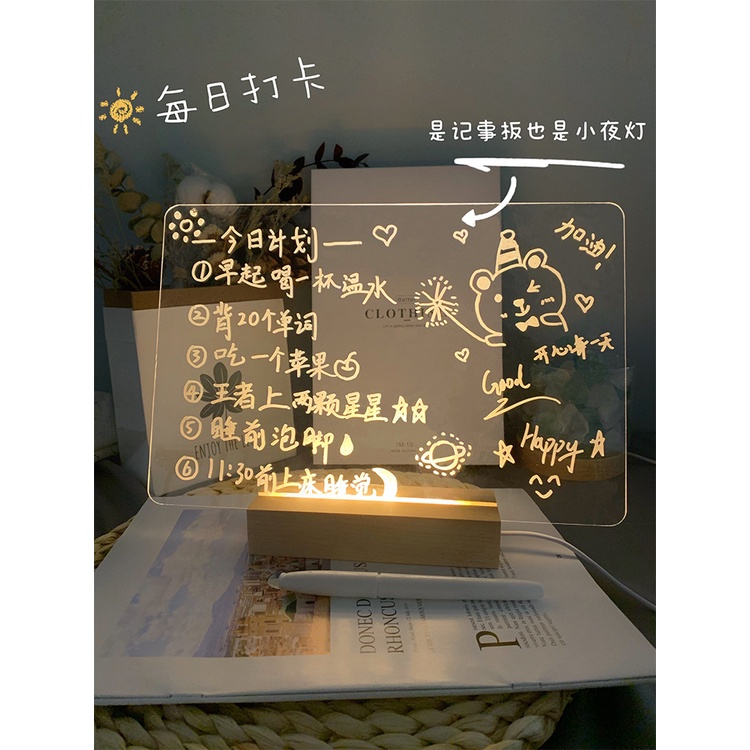 每日打卡
是记事板也是小夜灯
一今日计划一
①早起喝一杯温水
②背20个单词
③吃一个苹果
④王者上两颗星星
⑤睡前泡脚
⑥11:30前上床睡觉
加油!
开心每一天
Good
Happy
CLOTHI
ENJOY THE
DONEC D
RHONCUS
P